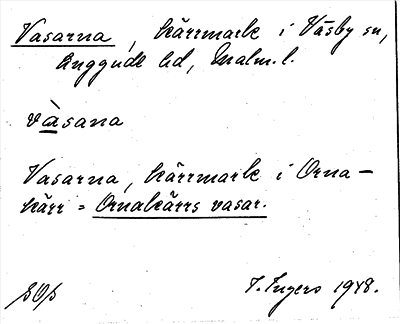 Vasarna, kärrmark i Väsby sn,
Luggude hd, Malm. l.
và̱sana
Vasarna, kärrmark i Orna-
kärr = Ornakärrs vasar.
T. Ingers 1948.